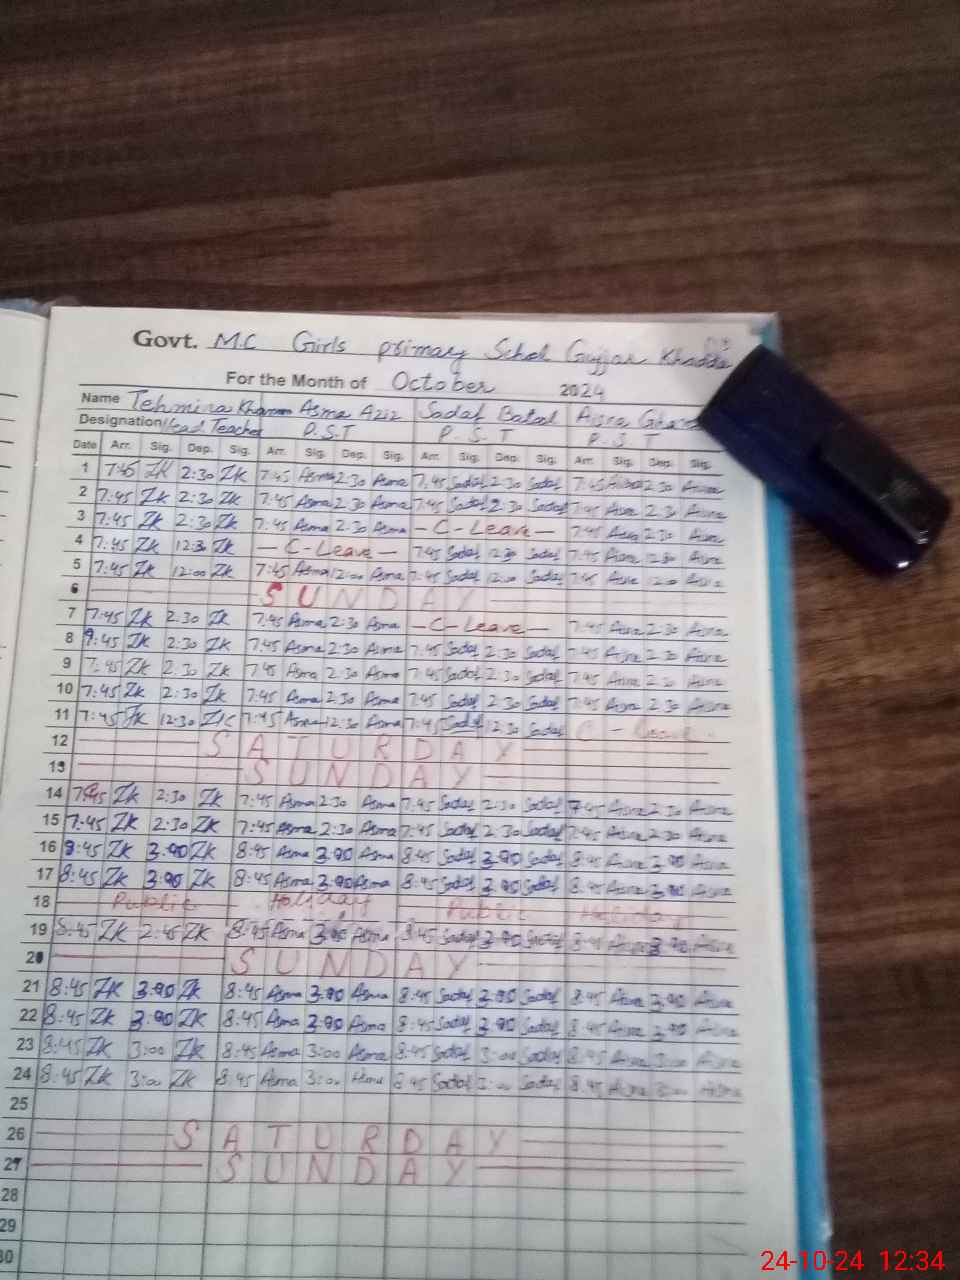 Govt. M.C Girls primary School Gujjar Khadda
For the Month of October 2024
Name Tehmina Khanam Asma Aziz Sadaf Batal Aisra
Designation Head Teacher P.S.T P.S.T P.S.T
Date Arr. Sig. Dep. Sig. Arr. Sig. Dep. Sig. Arr. Sig. Dep. Sig. Arr. Sig. Dep. Sig.
1 7:45 ZK 2:30 ZK 7:45 Asma 2:30 Asma 7:45 Sadaf 2:30 Sadaf 7:45 Aisra 2:30 Aisra
2 7:45 ZK 2:30 ZK 7:45 Asma 2:30 Asma 7:45 Sadaf 2:30 Sadaf 7:45 Aisra 2:30 Aisra
3 7:45 ZK 2:30 ZK 7:45 Asma 2:30 Asma - C - Leave - 7:45 Aisra 2:30 Aisra
4 7:45 ZK 12:30 ZK - C - Leave - 7:45 Sadaf 12:30 Sadaf 7:45 Aisra 12:30 Aisra
5 7:45 ZK 12:00 ZK 7:45 Asma 12:00 Asma 7:45 Sadaf 12:00 Sadaf 7:45 Aisra 12:00 Aisra
6 SUNDAY
7 7:45 ZK 2:30 ZK 7:45 Asma 2:30 Asma - C - Leave - 7:45 Aisra 2:30 Aisra
8 7:45 ZK 2:30 ZK 7:45 Asma 2:30 Asma 7:45 Sadaf 2:30 Sadaf 7:45 Aisra 2:30 Aisra
9 7:45 ZK 2:30 ZK 7:45 Asma 2:30 Asma 7:45 Sadaf 2:30 Sadaf 7:45 Aisra 2:30 Aisra
10 7:45 ZK 2:30 ZK 7:45 Asma 2:30 Asma 7:45 Sadaf 2:30 Sadaf 7:45 Aisra 2:30 Aisra
11 7:45 ZK 12:30 ZK 7:45 Asma 12:30 Asma 7:45 Sadaf 12:30 Sadaf C - Leave
12 SATURDAY
13 SUNDAY
14 7:45 ZK 2:30 ZK 7:45 Asma 2:30 Asma 7:45 Sadaf 2:30 Sadaf 7:45 Aisra 2:30 Aisra
15 7:45 ZK 2:30 ZK 7:45 Asma 2:30 Asma 7:45 Sadaf 2:30 Sadaf 7:45 Aisra 2:30 Aisra
16 8:45 ZK 3:00 ZK 8:45 Asma 3:00 Asma 8:45 Sadaf 3:00 Sadaf 8:45 Aisra 3:00 Aisra
17 8:45 ZK 3:00 ZK 8:45 Asma 3:00 Asma 8:45 Sadaf 3:00 Sadaf 8:45 Aisra 3:00 Aisra
18 Public Holiday Public Holiday
19 8:45 ZK 2:45 ZK 8:45 Asma Asma 8:45 Sadaf 3:00 Sadaf 8:45 Aisra 3:00 Aisra
20 SUNDAY
21 8:45 ZK 3:00 ZK 8:45 Asma 3:00 Asma 8:45 Sadaf 3:00 Sadaf 8:45 Aisra 3:00 Aisra
22 8:45 ZK 3:00 ZK 8:45 Asma 3:00 Asma 8:45 Sadaf 3:00 Sadaf 8:45 Aisra 3:00 Aisra
23 8:45 ZK 3:00 ZK 8:45 Asma 3:00 Asma 8:45 Sadaf 3:00 Sadaf 8:45 Aisra 3:00 Aisra
24 8:45 ZK 3:00 ZK 8:45 Asma 3:00 Asma 8:45 Sadaf 3:00 Sadaf 8:45 Aisra 3:00 Aisra
25
26 SATURDAY
27 SUNDAY
28
29
30
24-10-24 12:34